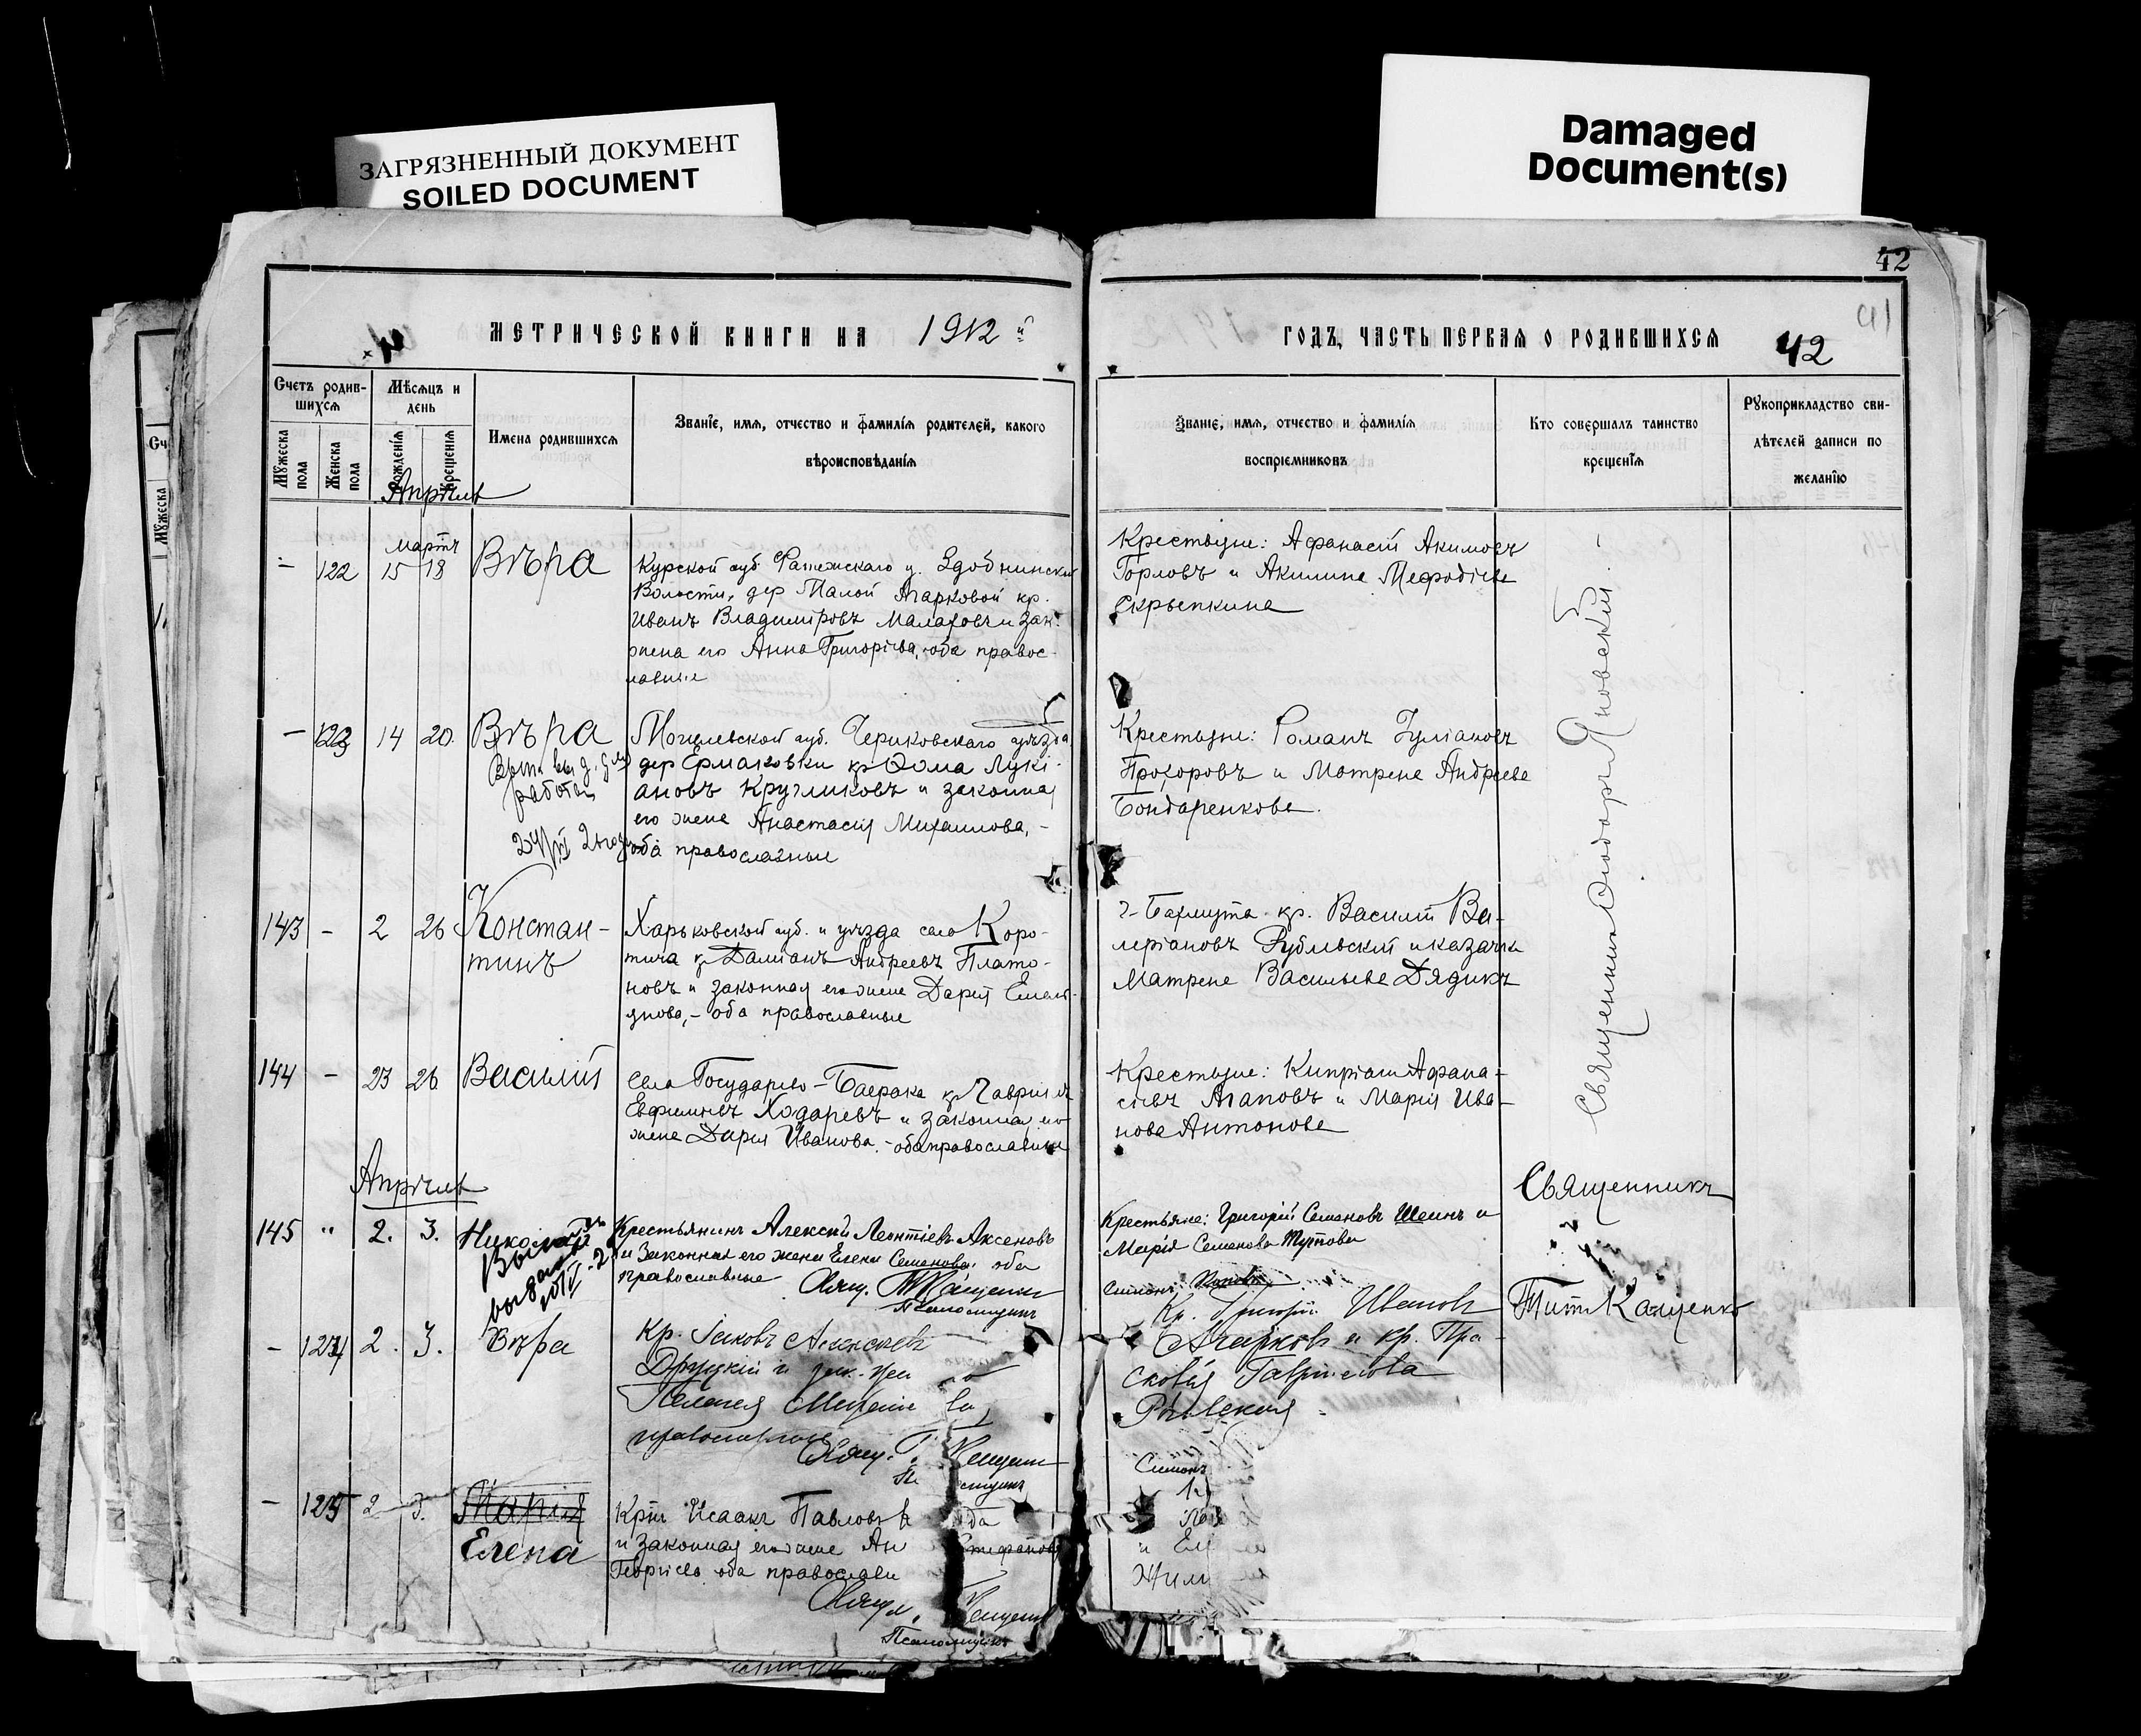 ЗАГРЯЗНЕННЫЙ ДОКУМЕНТ
SOILED DOCUMENT
Damaged
Document(s)
42
41
МЕТРИЧЕСКОЙ КНИГИ НА 1912 й
ГОДЪ, ЧАСТЬ ПЕРВАЯ О РОДИВШИХСЯ
42
Счетъ родив-
шихся
Мужеска пола
Женска пола
Мѣсяцъ и день
Рожденія
Крещенія
Имена родившихся
Званіе, имя, отчество и фамилія родителей, какого
вѣроисповѣданія
Званіе, имя, отчество и фамилія
воспріемниковъ
Кто совершалъ таинство
крещенія
Рукоприкладство сви-
дѣтелей записи по
желанію
Апрѣль
Мартъ
- 122 15 18 Вѣра
Курской губ. Фатежскаго у.
Волости, дер Малой Агарковой кр.
Иванъ Владиміровъ Малаховъ и зак.
жена его Анна Григорьева, оба правос-
лавные
Крестьяне: Афанасій Акимовъ
Горловъ и Акилина Мефодіева
Скрыпкина
- 123 14 20 Вѣра
Могилевской губ. Чериковскаго уѣзда
дер Ермаковки кр Ѳома Лукі-
ановъ Кругликовъ и законная
его жена Анастасія Михаилова, -
оба православные
Крестьяне: Романъ Іуліановъ
Прохоровъ и Матрена Андреева
Бондаренкова.
143 - 2 26 Констан-
тинъ
Харьковской губ. и уѣзда село Коро-
тича кр Даміанъ Андреевъ Плато-
новъ и законная его жена Дарія Емель-
янова, - оба православные
г. Бахмута кр. Василій Ва-
леріановъ Рублевскій и казачка
Матрена Васильева Дядикъ
144 - 23 26 Василій
Села Государево-Баерака кр Гавріилъ
Евфиміевъ Ходаревъ и законная его
жена Дарія Иванова. - оба православные
Крестьяне: Кипріанъ Афана-
сіевъ Агаповъ и Марія Ива-
нова Антонова
Священникъ Ѳеодоръ Яновскій.
Апрѣль
145 " 2. 3. Николай
Крестьянинъ Алексѣй Леонтіевъ Аксеновъ
и Законная его жена Елена Семенова. оба
православные
Псаломщикъ
Крестьяне: Григорій Семеновъ Шеинъ и
Марія Семенова Тутова
Священникъ
Титъ Кащенко
- 124 2. 3. Вѣра
Кр. Іаковъ Алексѣевъ
Друцкій и зак. жен
Пелагея
православные
Кр. Григорій Ивановъ
Агарковъ и кр. Пра-
сковія Гавріилова
- 125 2 3. Марія
Елена
Исаакъ Павловъ
и законная его жена Ан Стефанова
Георгіева оба православн
Псаломщикъ